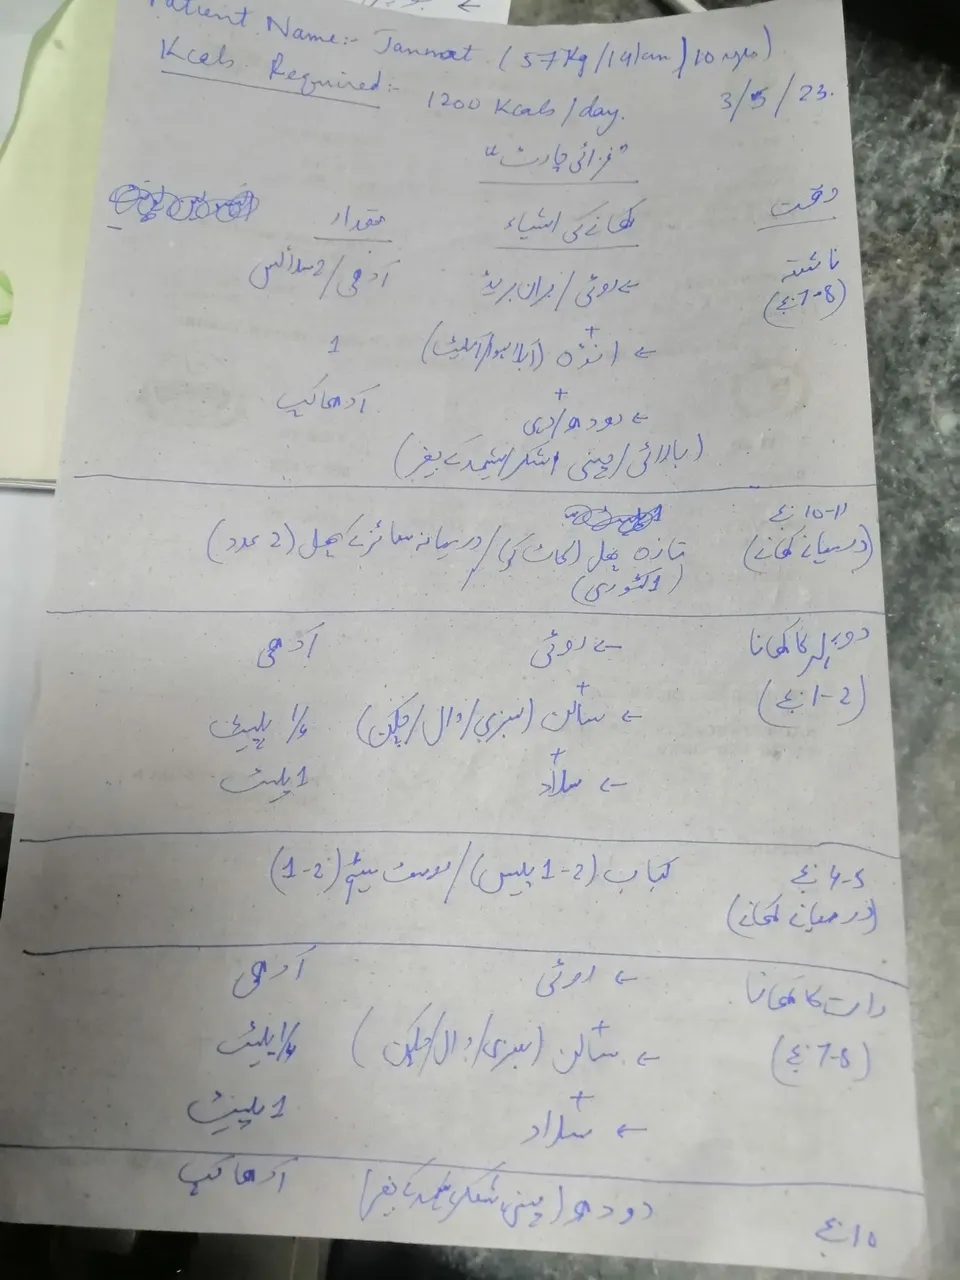 Patient Name:- Jannat (57 Kg/141cm/10 yrs)
Kcals Required:- 1200 Kcals/day. 3/5/23.
"غزائی چارٹ"
وقت کھانے کی اشیاء مقدار
ناشتہ ← روٹی/بران بریڈ آدھی/2 سلائس
(7-8 بجے) +
← انڈہ (ابلا ہوا/آملیٹ) 1
+
← دودھ/دہی آدھا کپ
(بالائی/چینی/شکر/شہد کے بغیر)
10-11 بجے
(درمیانے کھانے) تازہ پھل (کاٹ کر)/درمیانہ سائز کے پھل (2 عدد)
(1 کٹوری)
دوپہر کا کھانا ← روٹی آدھی
(1-2 بجے) +
← سالن (سبزی/دال/چکن) 1/4 پلیٹ
+
← سلاد 1 پلیٹ
4-5 بجے کباب (1-2 پیس)/ (1-2)
(درمیانے کھانے)
رات کا کھانا ← روٹی آدھی
(7-8 بجے) +
← سالن (سبزی/دال/چکن) 1/4 پلیٹ
+
← سلاد 1 پلیٹ
10 بجے دودھ (چینی/شکر/شہد کے بغیر) آدھا کپ